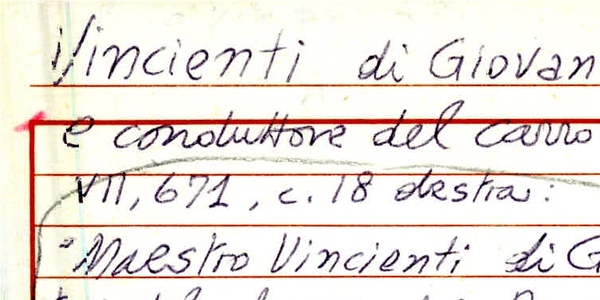 Vincienti di Giovan
e conduttore del carro
VII, 671, c. 18 destra:
"Maestro Vincienti di G